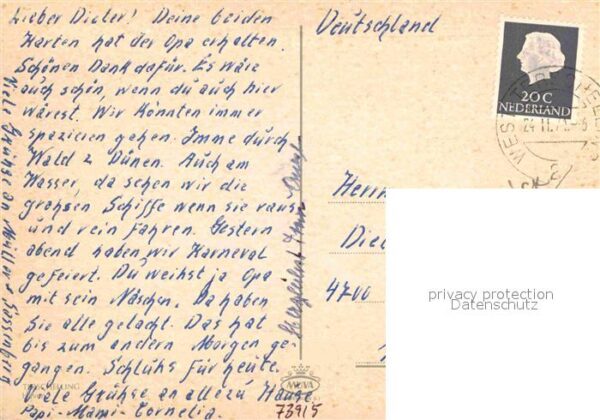 Lieber Dieter! Deine beiden
Karten hat der Opa erhalten.
Schönen Dank dafür. Es wäre
auch schön, wenn du auch hier
wärest. Wir könnten immer
spazieren gehen. Imme durch
Wald z Dünen. Auch am
Wasser, da sehen wir die
grohsen Schiffe wenn sie raus
und rein fahren. Gestern
abend haben wir Karneval
gefeiert. Du weihst ja Opa
mit sein Näschen. Da haben
Sie alle gelacht. Das hat
bis zum andern Morgen ge-
gangen. Schluhs für heute.
Viele Grühse an alle zu Hause
Papi-Mami-Cornelia.
Viele Grühse an Müller
Deutschland
20C
NEDERLAND
WEST
Herrn
Die
4700
privacy protection
Datenschutz
TERSCHELLING
MUVA
73915